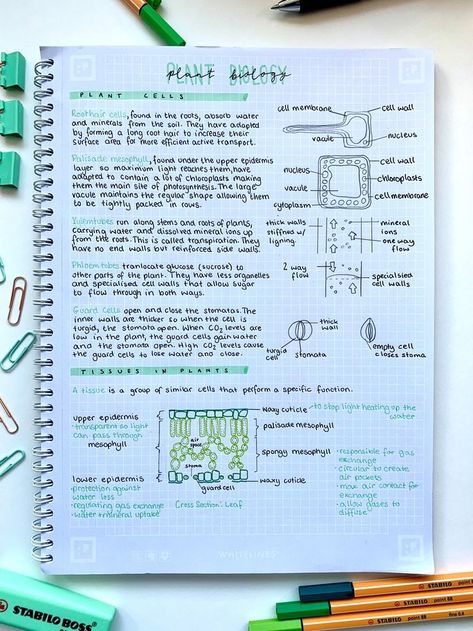 PLANT BIOLOGY
plant biology
PLANT CELLS
Root hair cells, found in the roots, absorb water
and minerals from the soil. They have adapted
by forming a long root hair to increase their
surface area for more efficient active transport.
cell membrane
cell wall
vacule
nucleus
Palisade mesophyll, found under the upper epidermis
layer so maximum light reaches them, have
adapted to contain a lot of chloroplasts making
them the main site of photosynthesis. The large
vacule maintains the regular shape allowing them
to be tightly packed in rows.
nucleus
vacule
cytoplasm
cell wall
chloroplasts
cell membrane
Xylem tubes run along stems and roots of plants,
carrying water and dissolved mineral ions up
from the roots. This is called transpiration. They
have no end walls but reinforced side walls.
thick walls
stiffned w/
ligning.
mineral
ions
one way
flow
Phloem tubes tranlocate glucose (sucrose) to
other parts of the plant. They have less organelles
and specialised cell walls that allow sugar
to flow through in both ways.
2 way
flow
specialsied
cell walls
Guard cells open and close the stomatas. The
inner walls are thicker so when the cell is
turgid, the stomata open. When CO2 levels are
low in the plant, the guard cells gain water
and the stomata open. High CO2 levels cause
the guard cells to lose water and close.
thick
wall
turgid
cell
stomata
empty cell
closes stoma
TISSUES IN PLANTS
A tissue is a group of similar cells that perform a specific function.
upper epidermis
-transparent so light
can pass through
mesophyll
lower epidermis
-protection against
water loss
-regulating gas exchange
-water + mineral uptake
air
space
stoma
guard cell
Cross Section: Leaf
waxy cuticle
-to stop light heating up the
water
palisade mesophyll
spongy mesophyll
waxy cuticle
-responsible for gas
exchange
-circular to create
air pockets
-max air contact for
exchange
-allow gases to
diffuse
WHITELINES
STABILO BOSS
STABILO point 88
STABILO point 88